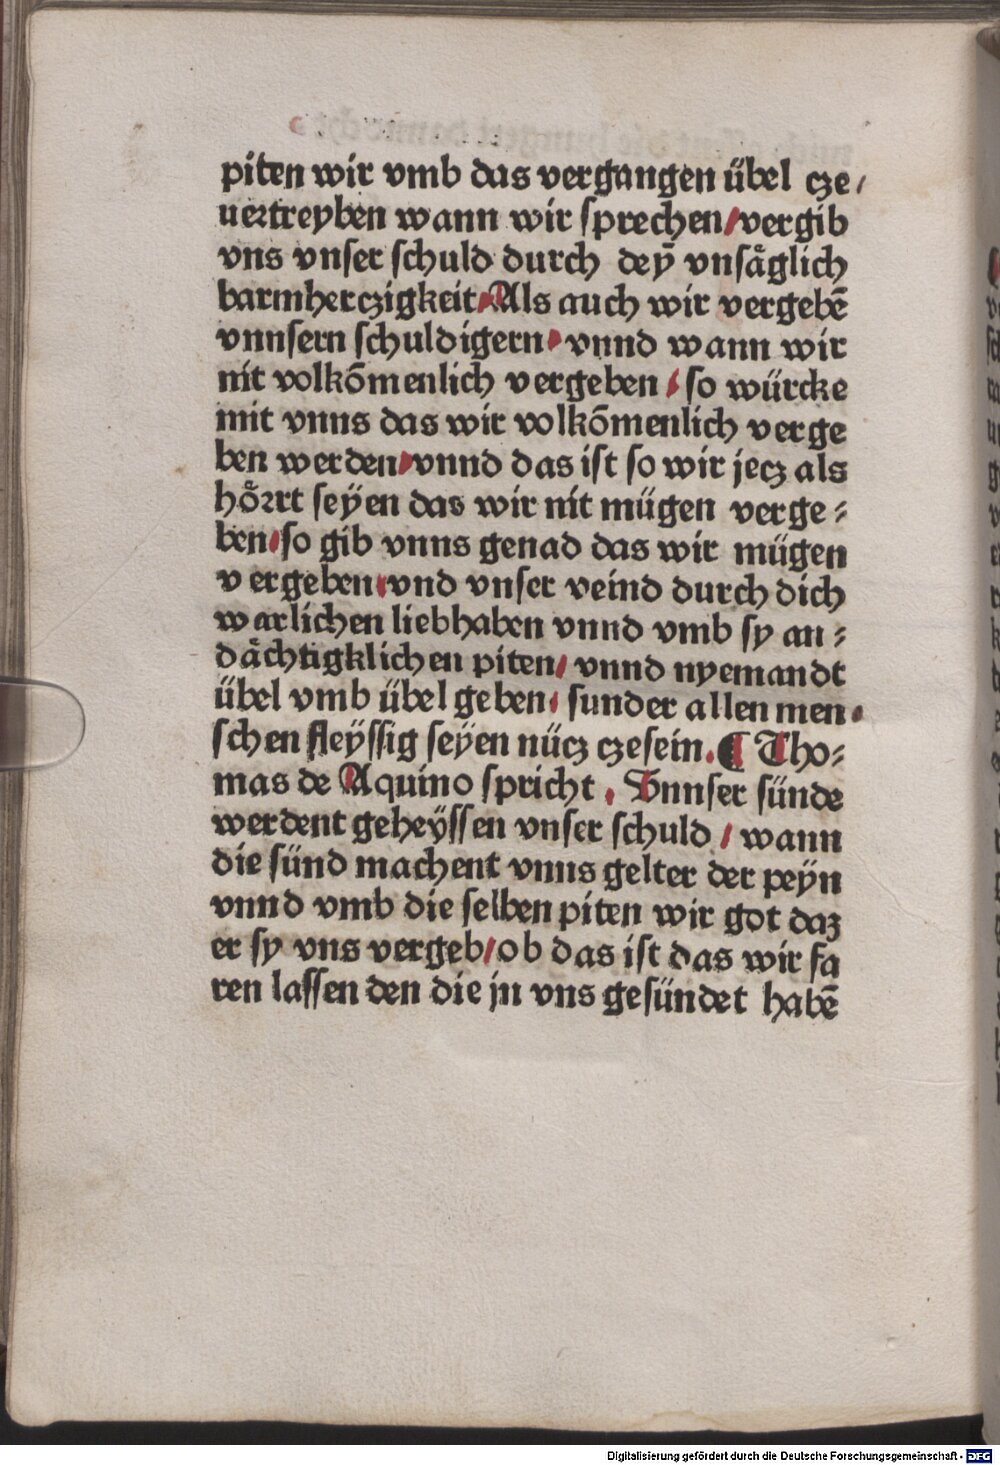 piten wir vmb das vergangen übel cze/
uertreyben wann wir sprechen/vergib
vns vnser schuld durch deȳ vnsäglich
barmherczigkeit/Als auch wir vergebē
vnnsern schuldigern/vnnd wann wir
nit volkōmenlich vergeben/so würcke
mit vnns das wir volkōmenlich verge
ben werden/vnnd das ist so wir jecz als
hörrt seÿen das wir nit mügen verge⸗
ben/so gib vnns genad das wir mügen
vergeben/vnd vnser veind durch dich
warlichen liebhaben vnnd vmb sy an⸗
dächtigklichen piten/vnnd nyemandt
übel vmb übel geben/sunder allen men/
schen fleÿssig seÿen nücz czesein.¶ Tho⸗
mas de Aquino spricht. Vnnser sünde
werdent geheÿssen vnser schuld/wann
die sünd machent vnns gelter der peÿn
vnnd vmb die selben piten wir got daz
er sy vns vergeb/ob das ist das wir fa
ren lassen den die jn vns gesündet habē
Digitalisierung gefördert durch die Deutsche Forschungsgemeinschaft - DFG